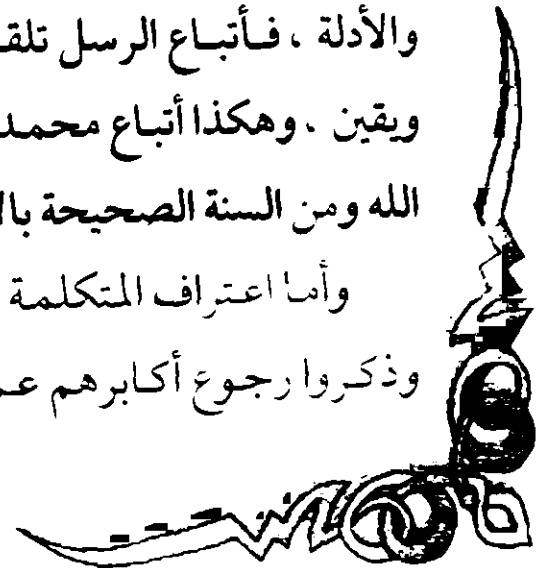 والأدلة ، فـأتبـاع الرسل تلقـ
ويقين . وهكذا أتبـاع محمـد
الله ومن السنة الصحيحة بالا
وأمـا اعـتراف المتكلمة
وذكـروا رجـوع أكـابرهم عمـ